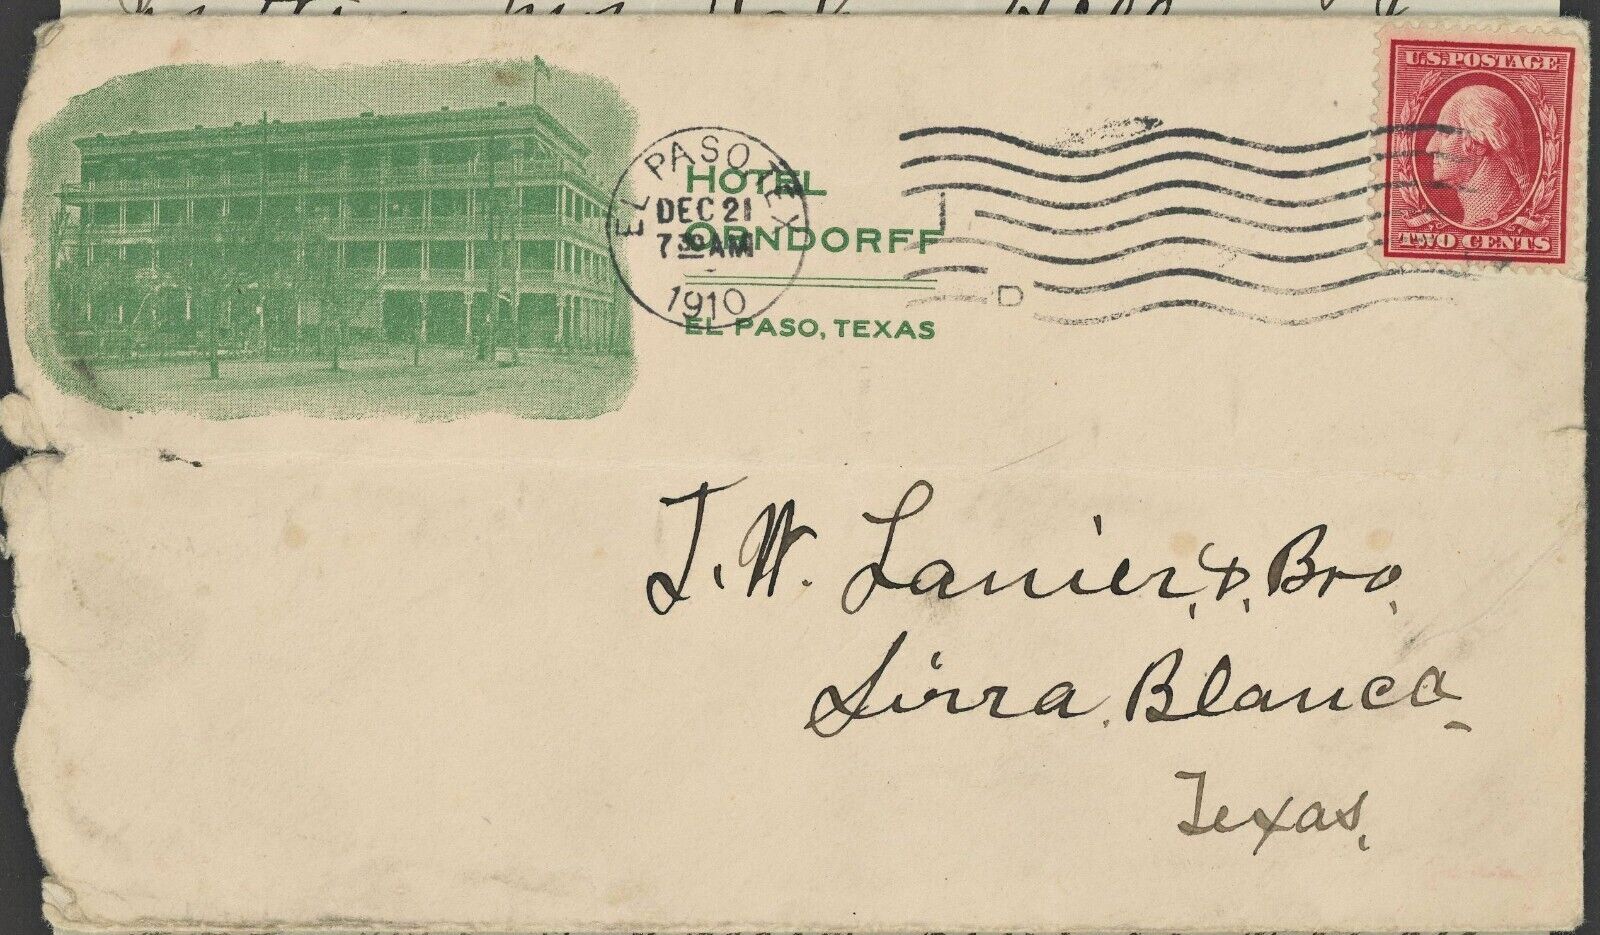 HOTEL
ORNDORFF
EL PASO, TEXAS
EL PASO TEX
DEC 21
7 30 AM
1910
D
U.S. POSTAGE
TWO CENTS
J. W. Lanier & Bro.
Sirra Blanca
Texas.